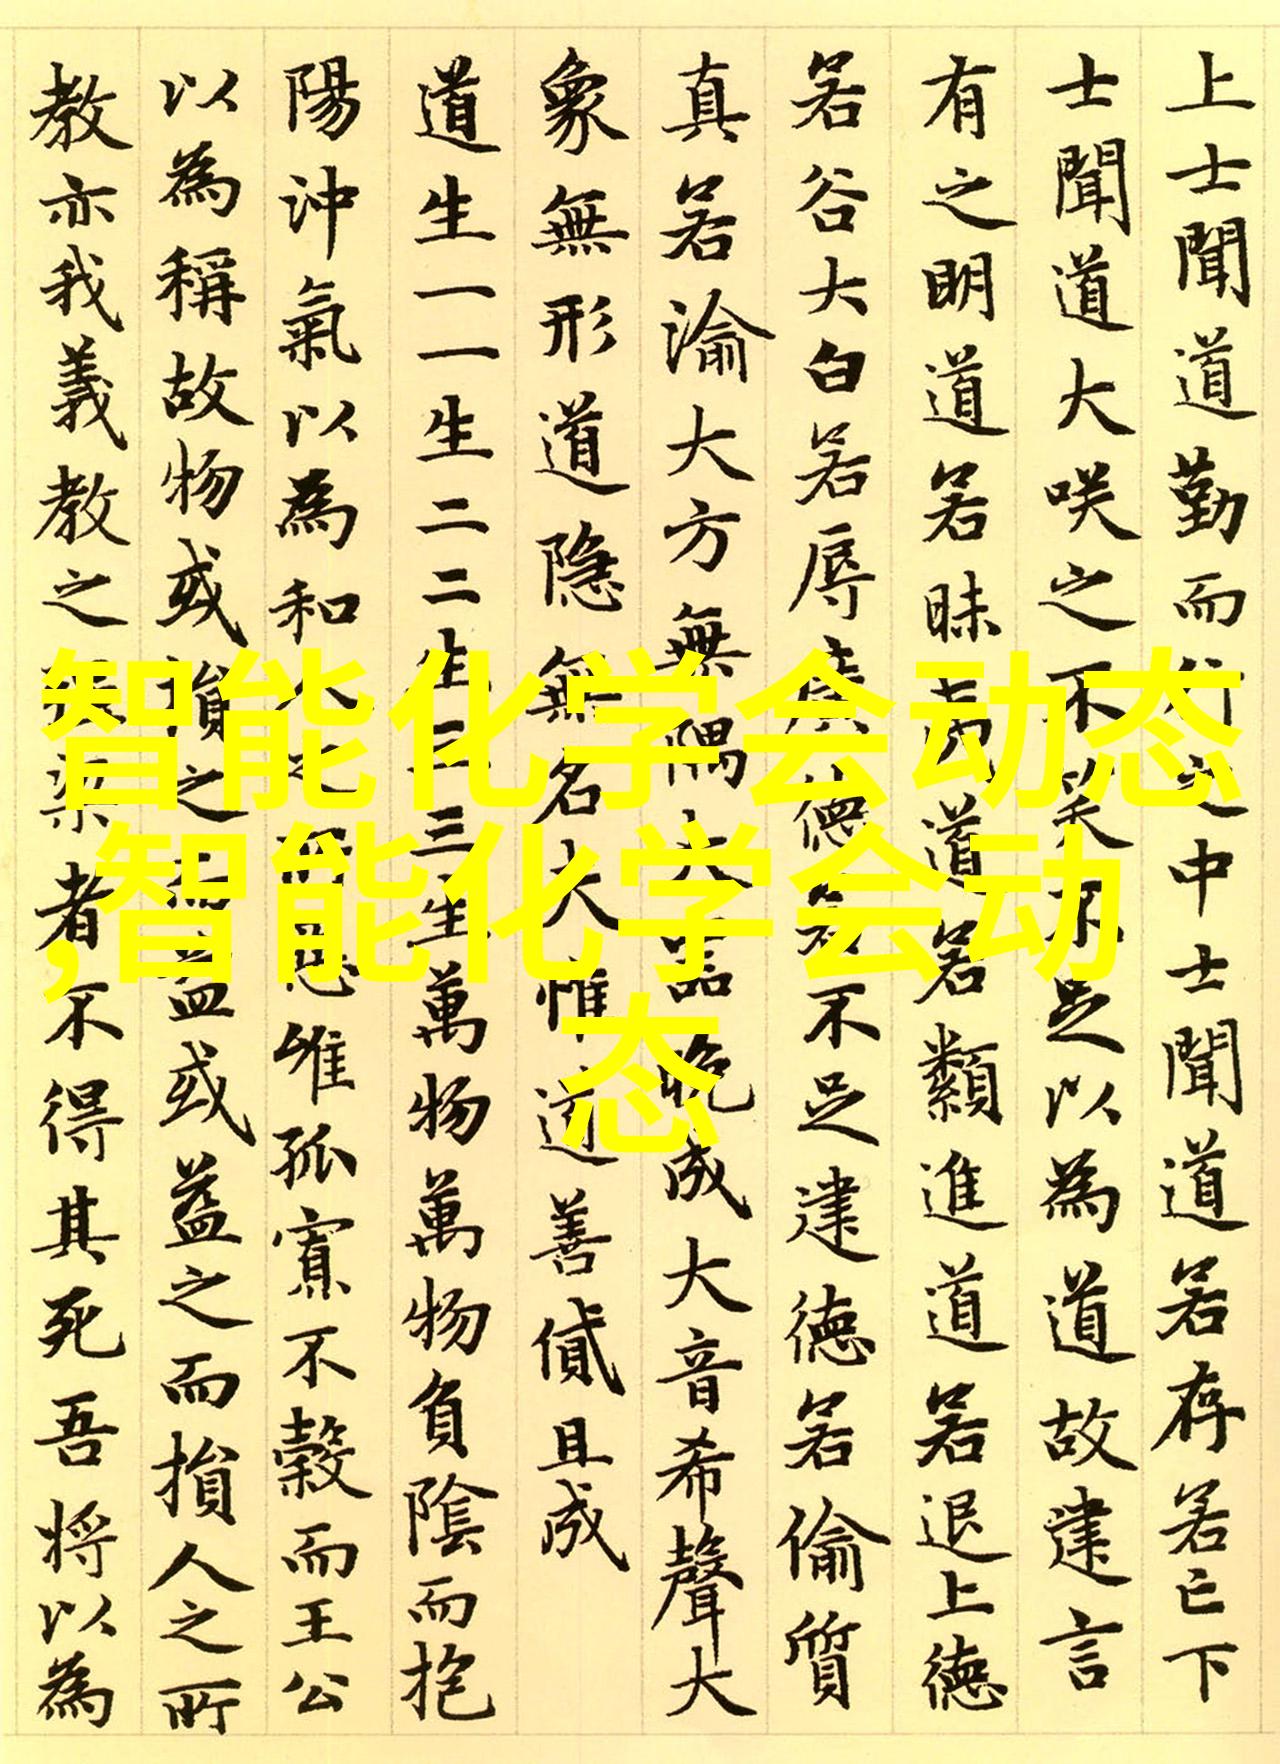 上士聞道勤而行之中士聞道若存若亡下
士聞道大咲之不笑不足以為道故建言
有之明道若昧夷道若纇進道若退上德
若谷大白若辱廣德若不足建德若偷質
真若渝大方無隅大器晚成大音希聲大
象無形道隐無名夫惟道善貸且成
道生一一生二二生三三生萬物萬物負陰而抱
陽沖氣以為和人之所惡惟孤寡不穀而王公
以為稱故物或損之而益或益之而損人之所
教亦我義教之强梁者不得其死吾将以為
智能化学会动态
,智能化学会动
态